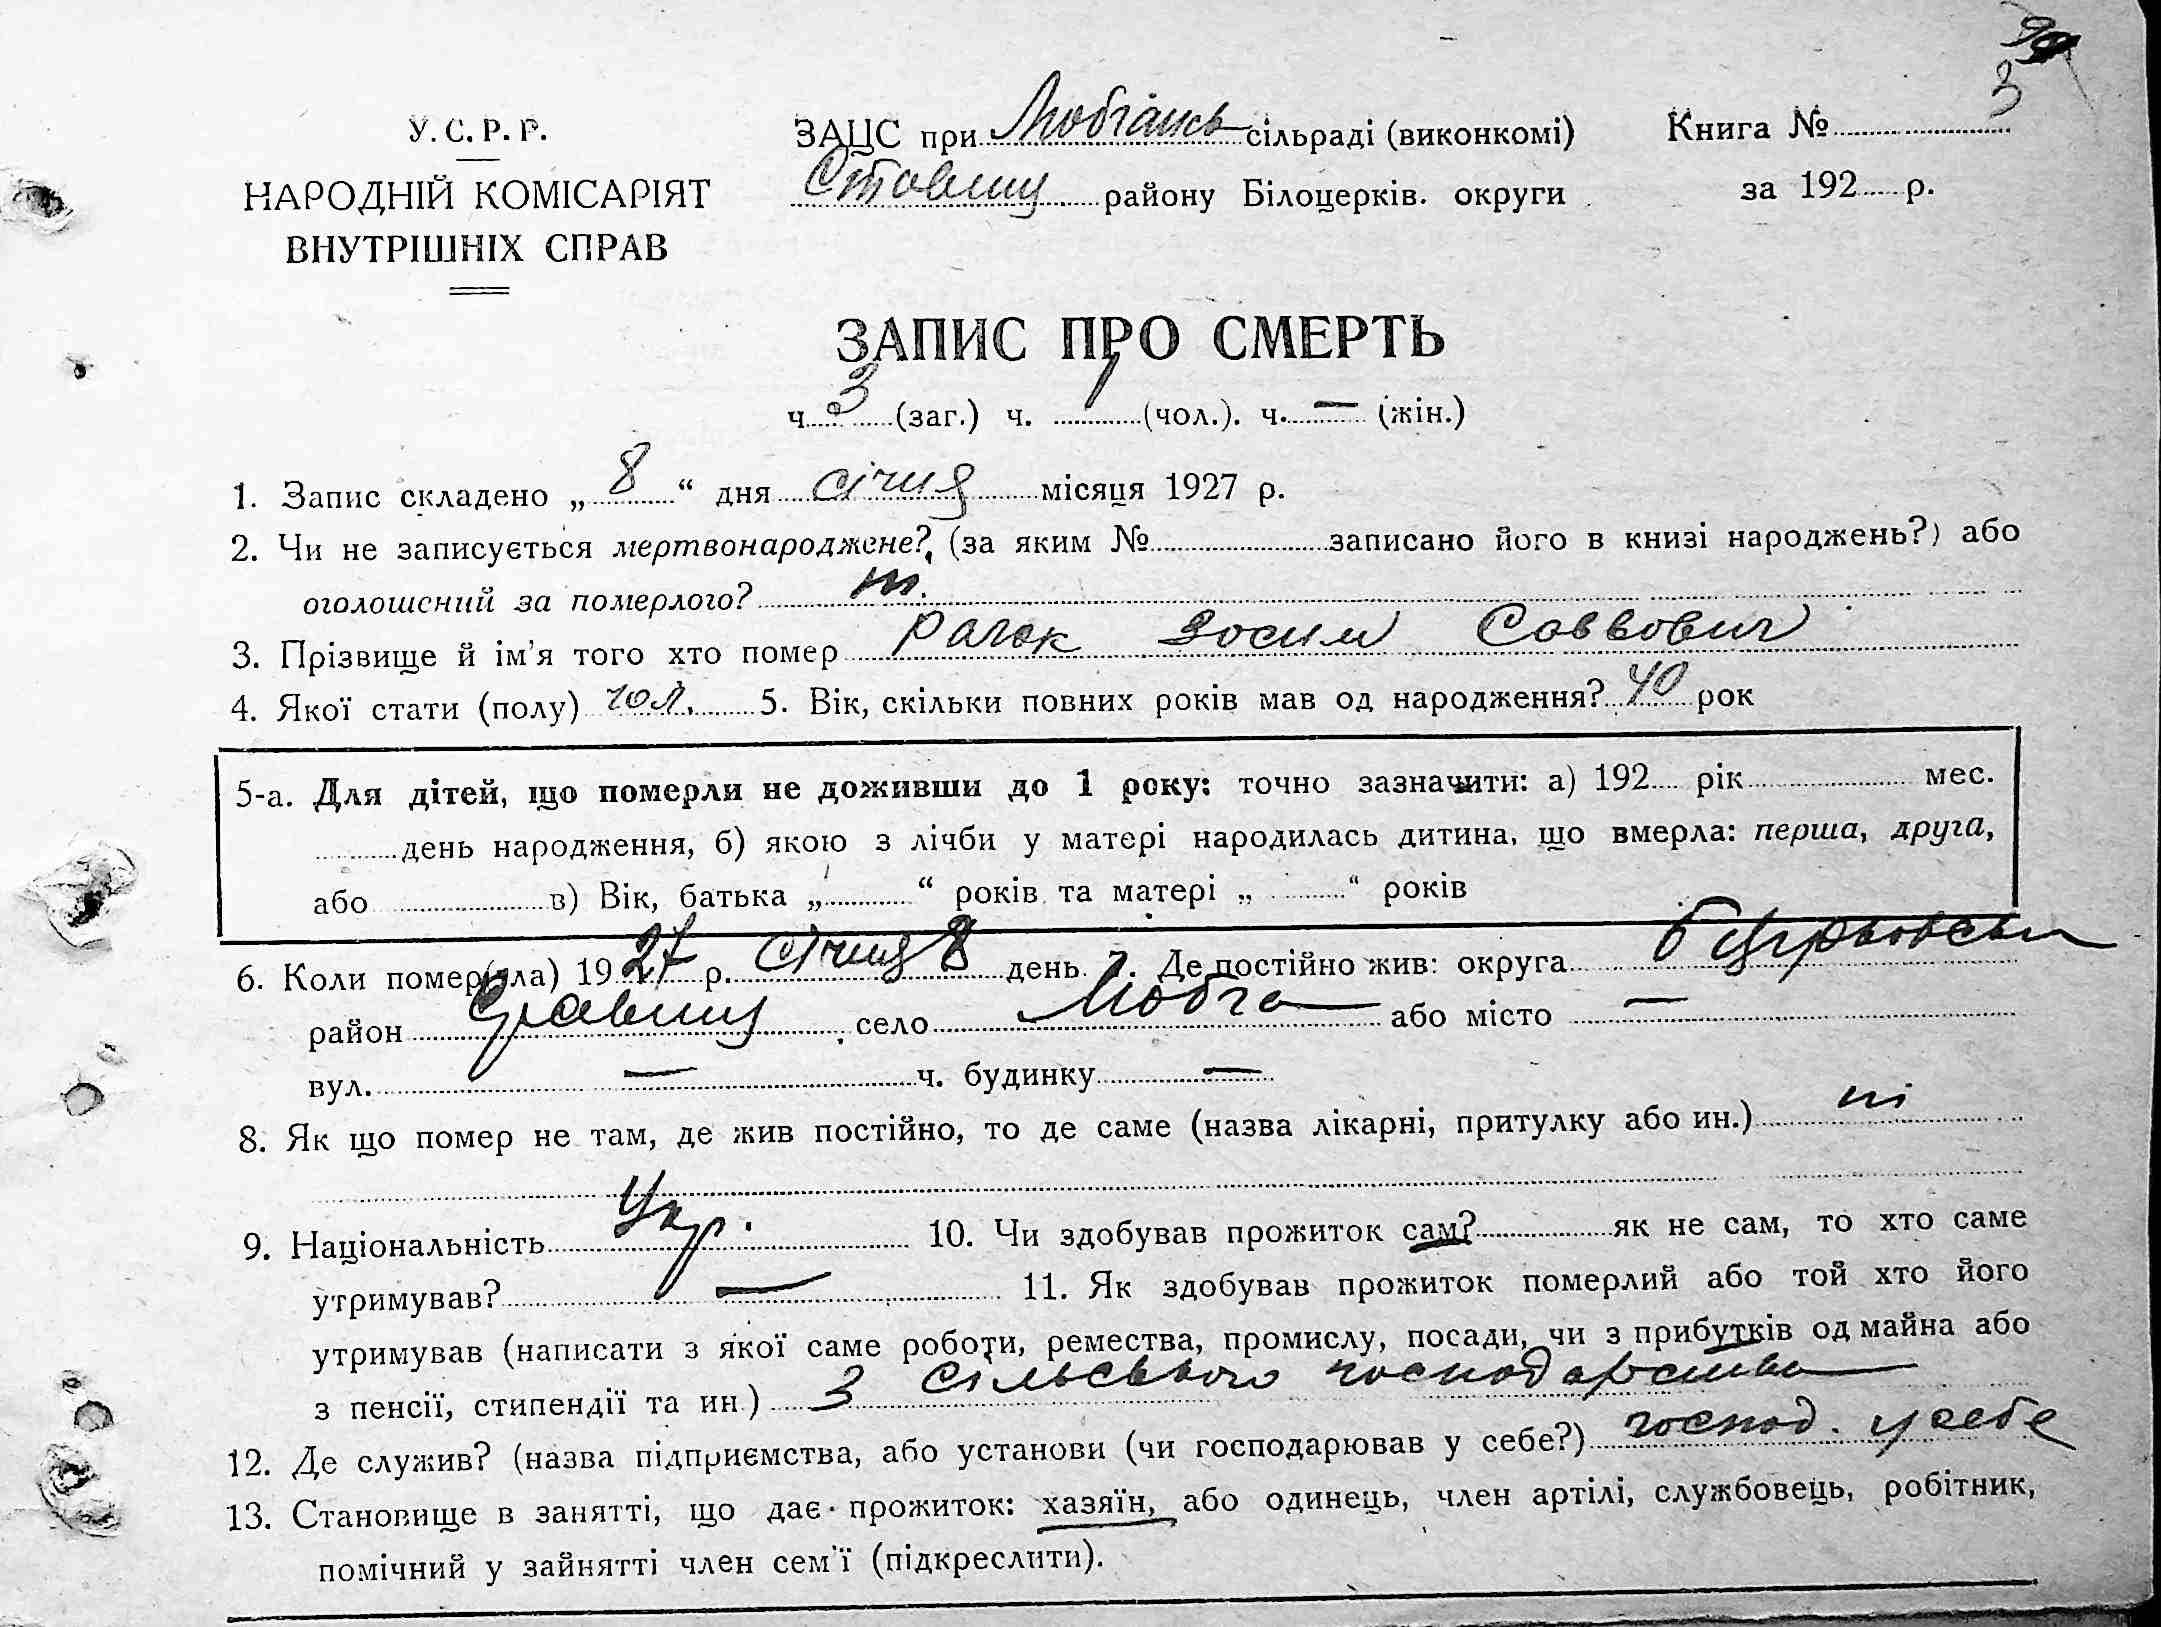 3
У. С. Р. Р.
НАРОДНІЙ КОМІСАРІЯТ
ВНУТРІШНІХ СПРАВ
ЗАЦС при сільраді (виконкомі)
Ставищ району Білоцерків. округи
Книга №
за 192 р.
ЗАПИС ПРО СМЕРТЬ
ч. 3 (заг.) ч. 1 (чол.). ч. — (жін.)
1. Запис складено „ 8 “ дня січня місяця 1927 р.
2. Чи не записується мертвонароджене? (за яким № записано його в книзі народжень?) або
оголошений за померлого? ні.
3. Прізвище й ім'я того хто помер Зосим Саввович
4. Якої стати (полу) чол. 5. Вік, скільки повних років мав од народження? 40 рок
5-а. Для дітей, що померли не доживши до 1 року: точно зазначити: а) 192 рік мес.
день народження, б) якою з лічби у матері народилась дитина, що вмерла: перша, друга,
або в) Вік, батька „ “ років та матері „ “ років
6. Коли помер(ла) 1927 р. січня 8 день 7. Де постійно жив: округа
район Ставищ село або місто —
вул. — ч. будинку —
8. Як що помер не там, де жив постійно, то де саме (назва лікарні, притулку або ин.) ні
9. Національність Укр. 10. Чи здобував прожиток сам? як не сам, то хто саме
утримував? — 11. Як здобував прожиток померлий або той хто його
утримував (написати з якої саме роботи, ремества, промислу, посади, чи з прибутків од майна або
з пенсії, стипендії та ин.) З сільського господарства
12. Де служив? (назва підприємства, або установи (чи господарював у себе?) господ. у себе
13. Становище в занятті, що дає прожиток: хазяїн, або одинець, член артілі, службовець, робітник,
помічний у зайнятті член сем'ї (підкреслити).